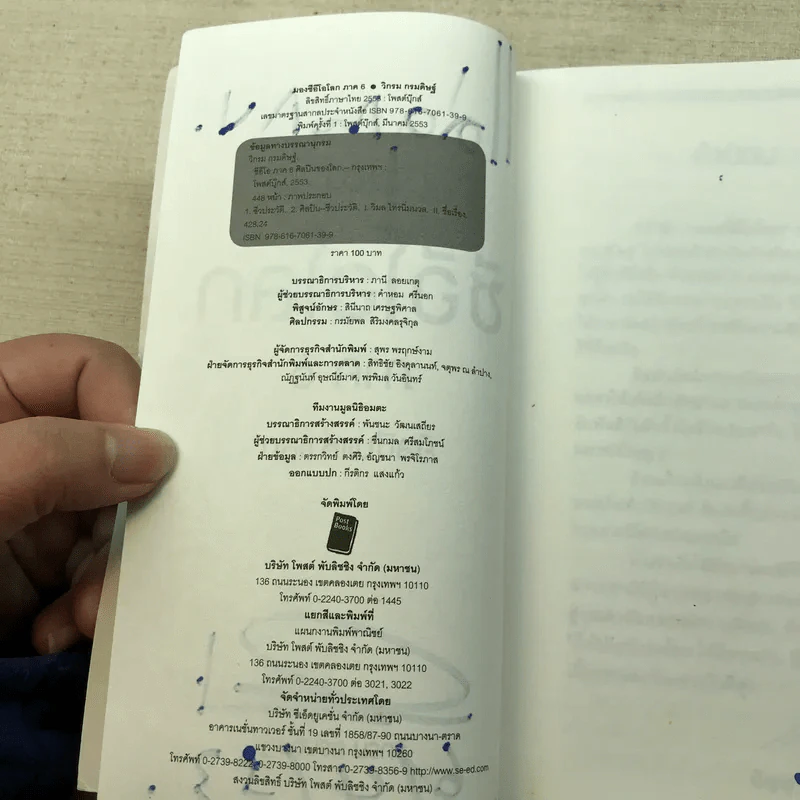 มองซีอีโอโลก ภาค 6 ● วิกรม กรมดิษฐ์
ลิขสิทธิ์ภาษาไทย 2553 : โพสต์บุ๊กส์
เลขมาตรฐานสากลประจำหนังสือ ISBN 978-616-7061-39-9
พิมพ์ครั้งที่ 1 : โพสต์บุ๊กส์, มีนาคม 2553
ข้อมูลทางบรรณานุกรม
วิกรม กรมดิษฐ์
ซีอีโอ ภาค 6 ศิลปินของโลก.-- กรุงเทพฯ
โพสต์บุ๊กส์, 2553
448 หน้า : ภาพประกอบ
1. ชีวประวัติ. 2. ศิลปิน--ชีวประวัติ. I. วิมล ไทรนิ่มนวล. II. ชื่อเรื่อง.
428.24
ISBN 978-616-7061-39-9
ราคา 100 บาท
บรรณาธิการบริหาร : ภานี ลอยเกตุ
ผู้ช่วยบรรณาธิการบริหาร : คำหอม ศรีนอก
พิสูจน์อักษร : สินีนาถ เศรษฐพิศาล
ศิลปกรรม : กรมัยพล สิริมงคลรุจิกุล
ผู้จัดการธุรกิจสำนักพิมพ์ : สุพร พรฤกษ์งาม
ฝ่ายจัดการธุรกิจสำนักพิมพ์และการตลาด : สิทธิชัย อิงคุลานนท์, จตุพร ณ ลำปาง,
ณัฏฐนันท์ อุษณีย์มาศ, พรพิมล วันอินทร์
ทีมงานมูลนิธิอมตะ
บรรณาธิการสร้างสรรค์ : พันชนะ วัฒนเสถียร
ผู้ช่วยบรรณาธิการสร้างสรรค์ : ชื่นกมล ศรีสมโภชน์
ฝ่ายข้อมูล : ตรรกวิทย์ ตงศิริ, อัญชนา พรจิโรภาส
ออกแบบปก : กีรติกร แสงแก้ว
จัดพิมพ์โดย
Post
Books
บริษัท โพสต์ พับลิชชิง จำกัด (มหาชน)
136 ถนนระนอง เขตคลองเตย กรุงเทพฯ 10110
โทรศัพท์ 0-2240-3700 ต่อ 1445
แยกสีและพิมพ์ที่
แผนกงานพิมพ์พาณิชย์
บริษัท โพสต์ พับลิชชิง จำกัด (มหาชน)
136 ถนนระนอง เขตคลองเตย กรุงเทพฯ 10110
โทรศัพท์ 0-2240-3700 ต่อ 3021, 3022
จัดจำหน่ายทั่วประเทศโดย
บริษัท ซีเอ็ดยูเคชั่น จำกัด (มหาชน)
อาคารเนชั่นทาวเวอร์ ชั้นที่ 19 เลขที่ 1858/87-90 ถนนบางนา-ตราด
แขวงบางนา เขตบางนา กรุงเทพฯ 10260
โทรศัพท์ 0-2739-8222, 0-2739-8000 โทรสาร 0-2739-8356-9 http://www.se-ed.com
สงวนลิขสิทธิ์ บริษัท โพสต์ พับลิชชิง จำกัด (มหาชน)